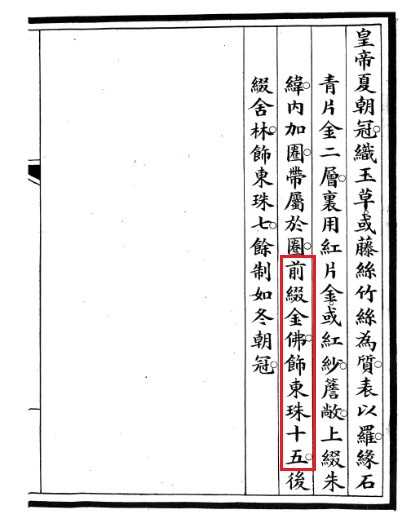 皇帝夏朝冠織玉草或藤絲竹絲為質表以羅緣石
青片金二層裏用紅片金或紅紗簷敞上綴朱
緯內加圈帶屬於圈前綴金佛飾東珠十五後
綴舍林飾東珠七餘制如冬朝冠